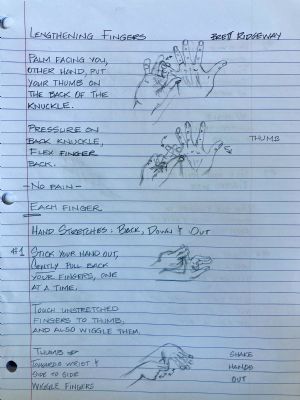 LENGTHENING FINGERS
BRETT RIDGEWAY
PALM FACING YOU,
OTHER HAND, PUT
YOUR THUMB ON
THE BACK OF THE
KNUCKLE.
PRESSURE ON
BACK KNUCKLE,
FLEX FINGER
BACK.
THUMB
- NO PAIN -
EACH FINGER
HAND STRETCHES: BACK, DOWN & OUT
#1 STICK YOUR HAND OUT,
GENTLY PULL BACK
YOUR FINGERS, ONE
AT A TIME.
TOUCH UNSTRETCHED
FINGERS TO THUMB,
AND ALSO WIGGLE THEM.
THUMB UP
TOWARDS WRIST &
SIDE TO SIDE
WIGGLE FINGERS
SHAKE
HANDS
OUT